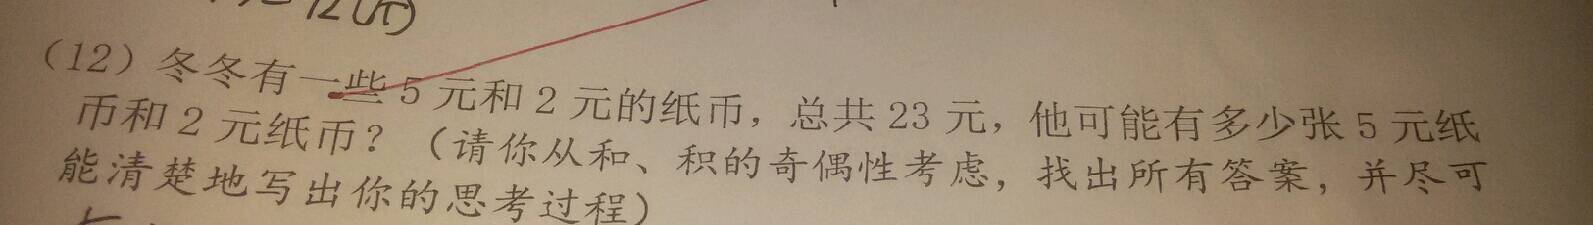 =12(斤)
(12)冬冬有一些5元和2元的纸币，总共23元，他可能有多少张5元纸
币和2元纸币？（请你从和、积的奇偶性考虑，找出所有答案，并尽可
能清楚地写出你的思考过程）